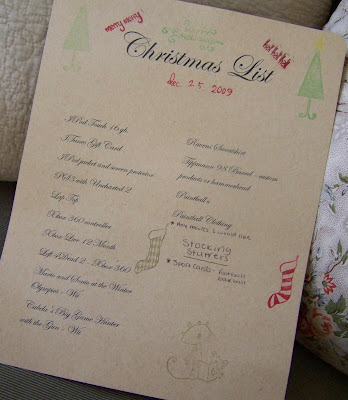 merry merry
ho! ho! ho!
Christmas List
Dec 25, 2009
IPod Touch 16 gb.
I Tunes Gift Card
IPod jacket and screen protector
PS3 with Uncharted 2
Lap Top
Xbox 360 controller
Xbox Live 12 Month
Left 4 Dead 2 - Xbox 360
Mario and Sonic at the Winter
Olympics - Wii
Cabela's Big Game Hunter
with the Gun - Wii
Ravens Sweatshirt
Tippmann 98 - custom
products or hammerhead
Paintball's
Paintball Clothing
* Any movies I would like
Stocking
Stuffers
* Sport cards - Football
baseball